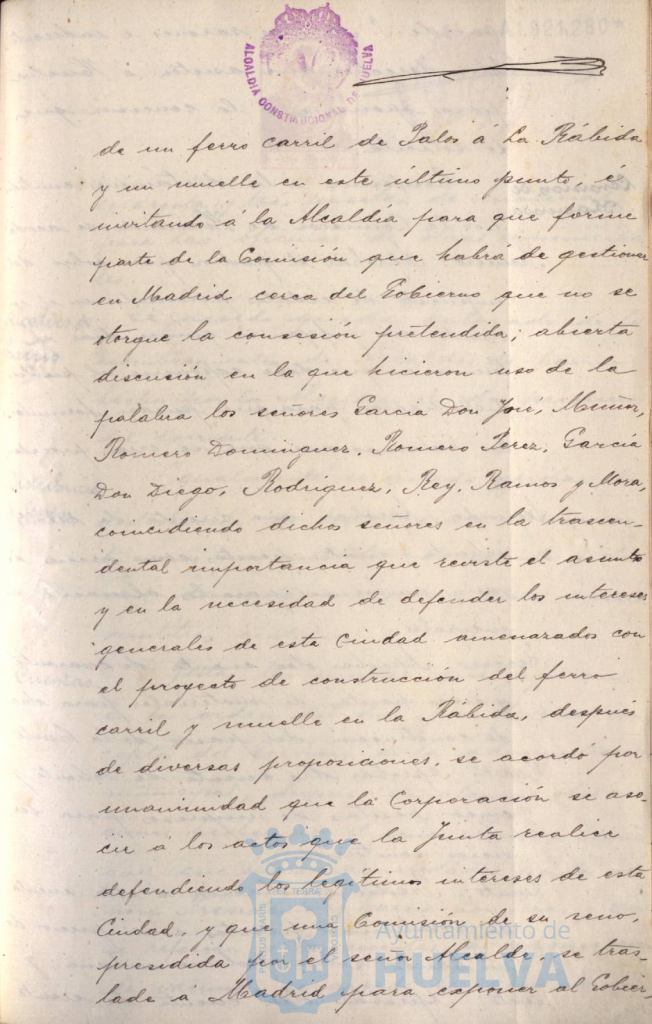 ALCALDÍA CONSTITUCIONAL DE HUELVA
de un ferro carril de Palos á La Rábida
y un muelle en este último punto, é
invitando á la Alcaldía para que forme
parte de la Comisión que habrá de gestionar
en Madrid cerca del Gobierno que no se
otorgue la consesión pretendida; abierta
discusión en la que hicieron uso de la
palabra los señores Garcia Don José, Muñoz,
Romero Dominguez, Romero Perez, García
Don Diego, Rodriguez, Rey, Ramos y Mora,
coincidiendo dichos señores en la trascen-
dental importancia que reviste el asunto
y en la necesidad de defender los intereses
generales de esta Ciudad amenazados con
el proyecto de construcción del ferro
carril y muelle en la Rábida, después
de diversas proposiciones, se acordó por
unanimidad que la Corporación se aso-
cie á los actos que la Junta realice
defendiendo los legítimos intereses de esta
Ciudad, y que una Comisión de su seno,
presidida por el señor Alcalde, se tras-
lade á Madrid para exponer al Gobier-
Ayuntamiento de
HUELVA